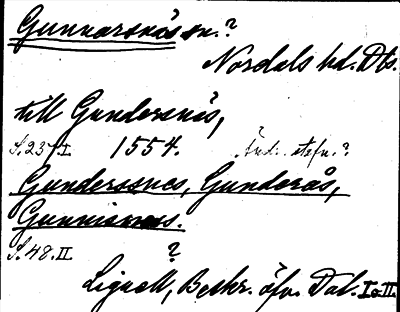 Gunnarsnäs sn.?
Nordals hd. Dls.
till Gundersnäs,
S. 237 I. 1554. Änd. stefn.?
Gunderssnes, Gunderås,
S. 48. II. ?
Lignell, Beskr. öfv. Dal. I o. II.